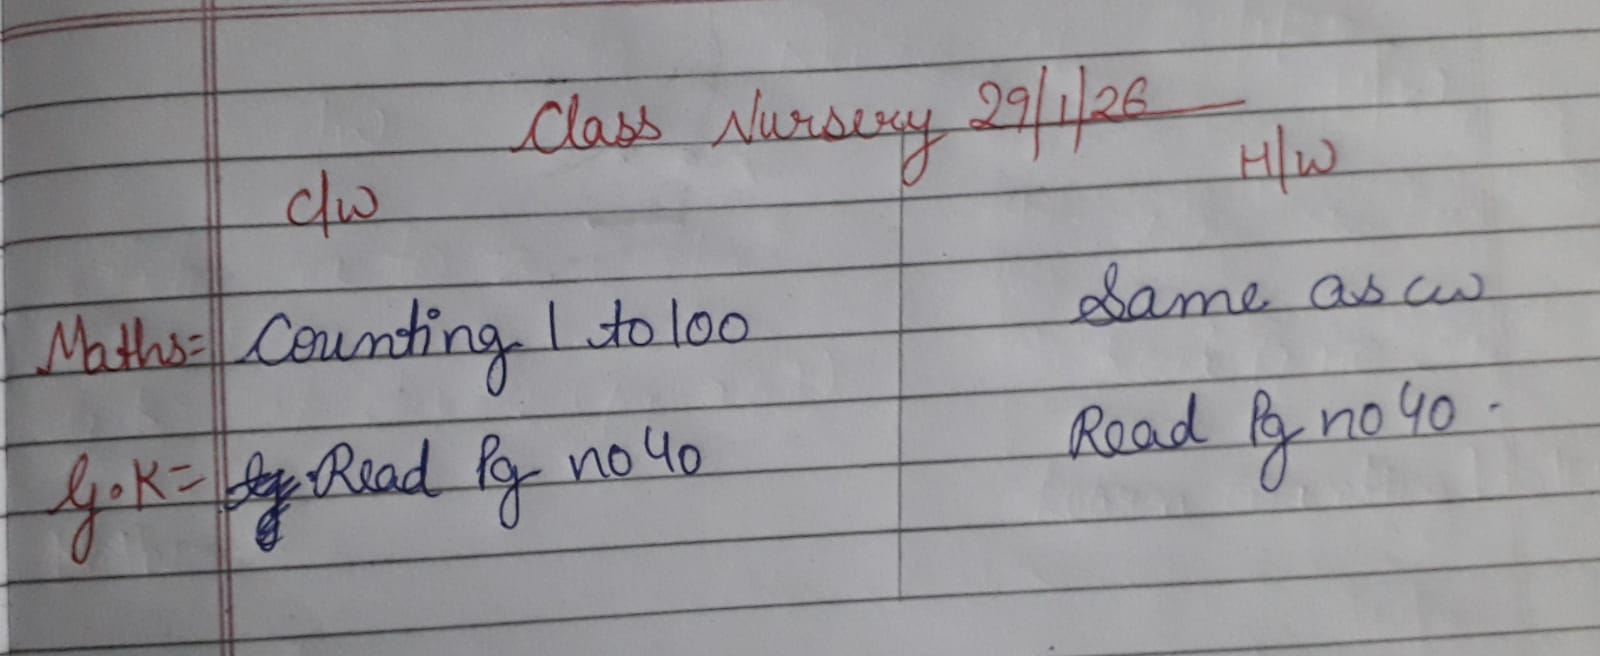 Class Nursery 29/1/26
C/W H/W
Maths= Counting 1 to 100 Same as cw
G.K= Read Pg no 40 Read Pg no 40.